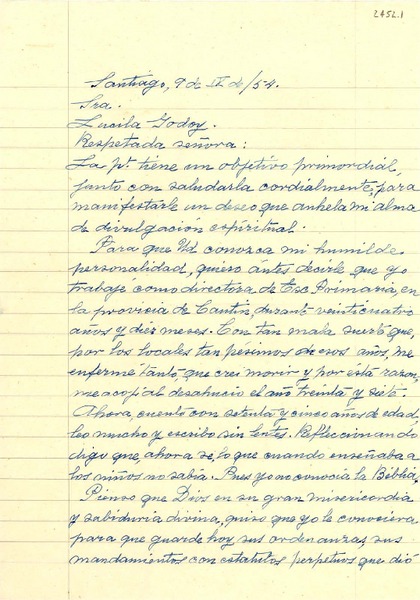 2452.1
Santiago, 9 de IX de /54.
Sra.
Lucila Godoy.
Respetada señora:
La pte. tiene un objetivo primordial,
junto con saludarla cordialmente, para
manifestarle un deseo que anhela mi alma
de divulgación espíritual.
Para que Ud. conozca mi humilde
personalidad, quiero ántes decirle que yo
trabajé como directora de Esc. Primaria, en
la provicia de Cautín, durante veinticuatro
años y diez meses. Con tan mala suerte que,
por los locales tan pésimos de esos años, me
enfermé tanto, que creí morir y por esta razon,
me acojí al desahucio el año treinta y siete.
Ahora, cuento con setenta y cinco años de edad
leo mucho y escribo sin lentes. Refleccionando
digo que, ahora se, lo que cuando enseñaba a
los niños no sabía. Pues yo no conocía la Biblia.
Pienso que Dios en su gran misericordia
y sabiduria divina, quiso que yo le conociera
para que guarde hoy sus ordenanzas, sus
mandamientos con estatutos perpetuos que dió